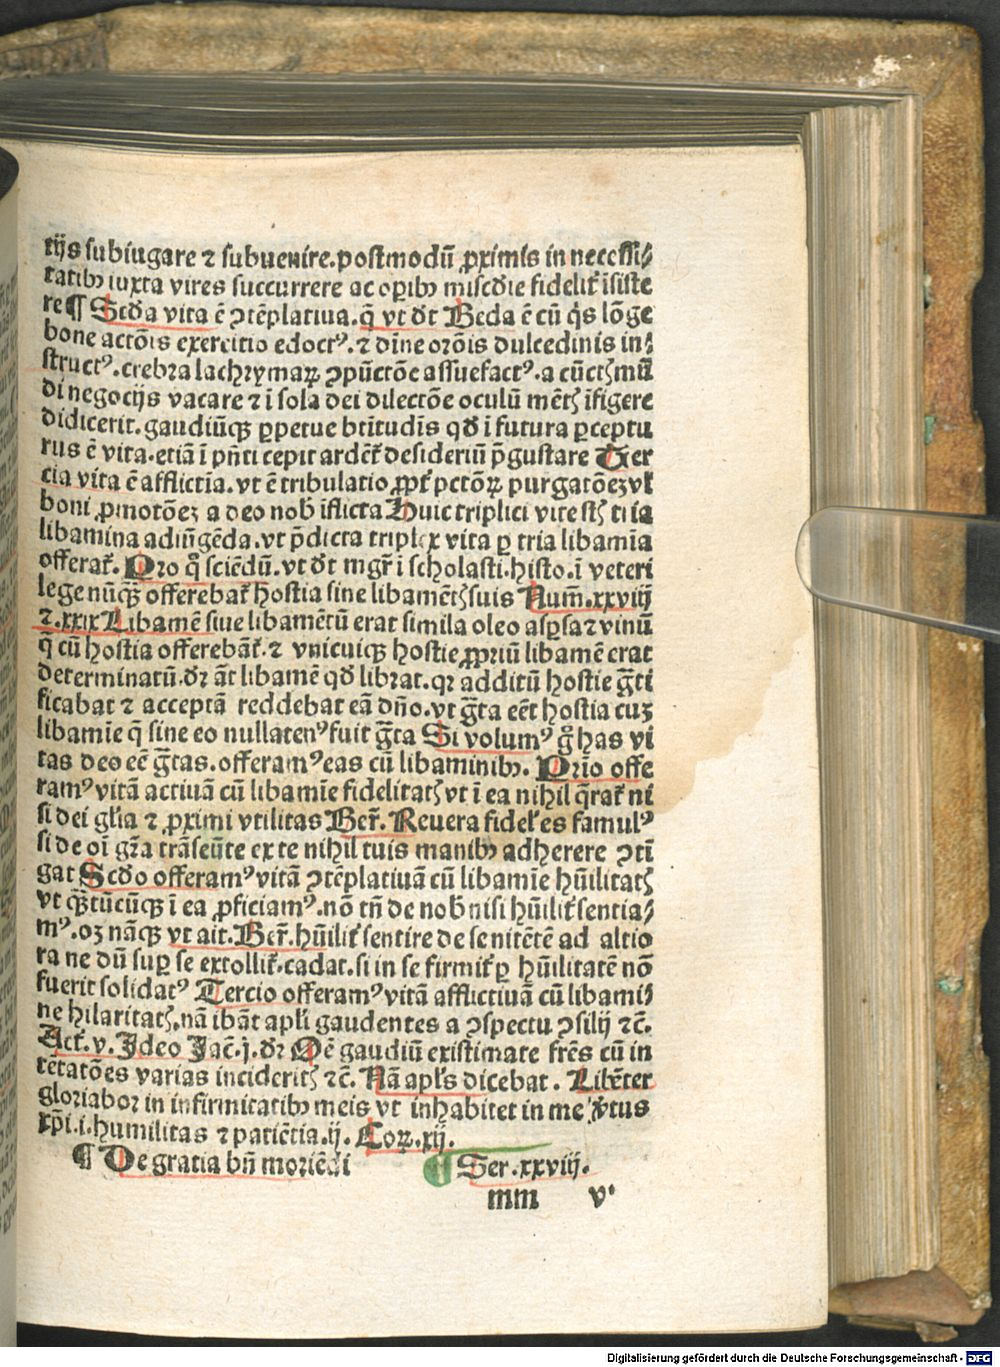 tijs subiugare ⁊ subuenire.postmodū ꝓximis in necessi⸗
tatibꝫ iuxta vires succurrere ac oꝑibꝫ misc̄die fidelit̄ īsiste
re¶ Scd̄a vita ē ↄtēplatiua.q̄ vt dt̄ Beda ē cū q̇s lōge
bone actōis exercitio edoctꝰ.⁊ dīne orōis dulcedinis in⸗
structꝰ.crebra lachrymaꝝ ↄpūctōe assuefactꝰ.a cūctꝭ mū
di negocijs vacare ⁊ ī sola dei dilectōe oculū mētꝭ īfigere
didicerit.gaudiūqꝫ ꝑpetue btītudīs qd̄ ī futura ꝑceptu
rus ē vita.etiā ī pn̄ti cepit ardēt̄ desideriū p̄gustare Ter
cia vita ē afflictia.vt ē tribulatio ꝓpt̄ pctōꝝ purgatōeꝫ vl̄
boni ꝓmotōeꝫ a deo nob̄ īflicta Huic triplici vite sꝭ tria
libamina adiūgēda.vt p̄dicta triplex vita ꝑ tria libamīa
offerat̄. Pro qͦ sciēdū.vt dt̄ mgr̄ ī scholasti.histo.ī veteri
lege nūqꝫ̄ offerebat̄ hostia sine libamētꝭ suis Nuim̄.xxviij
⁊.xxix Libamē siue libamētū erat simila oleo asꝑsa ⁊ vinū
q̄ cū hostia offerebāt̄.⁊ vnicuiqꝫ hostie ꝓpriū libamē erat
determinatū.dr̄ āt libamē qd̄ librat.qꝛ additū hostie gr̄ti
ficabat ⁊ acceptā reddebat eā dn̄o.vt gr̄ta eēt hostia cuꝫ
libamīe q̄ sine eo nullatenꝰ fuit gr̄ta Si volumꝰ gͦ has vi
tas deo eē gr̄tas.offeramꝰ eas cū libaminibꝫ. Primo offe
ramꝰ vitā actiuā cū libamīe fidelitatꝭ vt ī ea nihil q̄rat̄ ni
si dei gl̄ia ⁊ ꝓximi vtilitas Ber̄. Reuera fidel̄ es famulꝰ
si de oī gr̄a trāseūte ex te nihil tuis manibꝫ adherere ↄtī
gat Scd̄o offeramꝰ vitā ↄtēplatiuā cū libamīe hūilitatꝭ
vt qꝫ̄tūcūqꝫ ī ea ꝓficiamꝰ.nō tn̄ de nob̄ nisi hūilit̄ sentia⸗
mꝰ.oꝫ nāqꝫ vt ait.Ber̄.hūilit̄ sentire de se nitētē ad altio
ra ne dū suꝑ se extollit̄.cadat.si in se firmit̄ ꝑ hūilitatē nō
fuerit solidatꝰ Tercio offeramꝰ vitā afflictiuā cū libami⸗
ne hilaritatꝭ.nā ibāt apl̄i gaudentes a ↄspectu ↄsilij ⁊c̄.
Act̄.v. Ideo Jac̄.j.dr̄ Oē gaudiū existimate frēs cū in
tētatōes varias incideritꝭ ⁊c̄. Nā apl̄s dicebat. Libēter
gloriabor in infirmitatibꝫ meis vt inhabitet in me v̄tus
xp̄i.i.humilitas ⁊ patiētia.ij. Coꝝ.xij.
¶ De gratia bn̄ moriēdi ¶ Ser.xxviij.
mm v
Digitalisierung gefördert durch die Deutsche Forschungsgemeinschaft - DFG